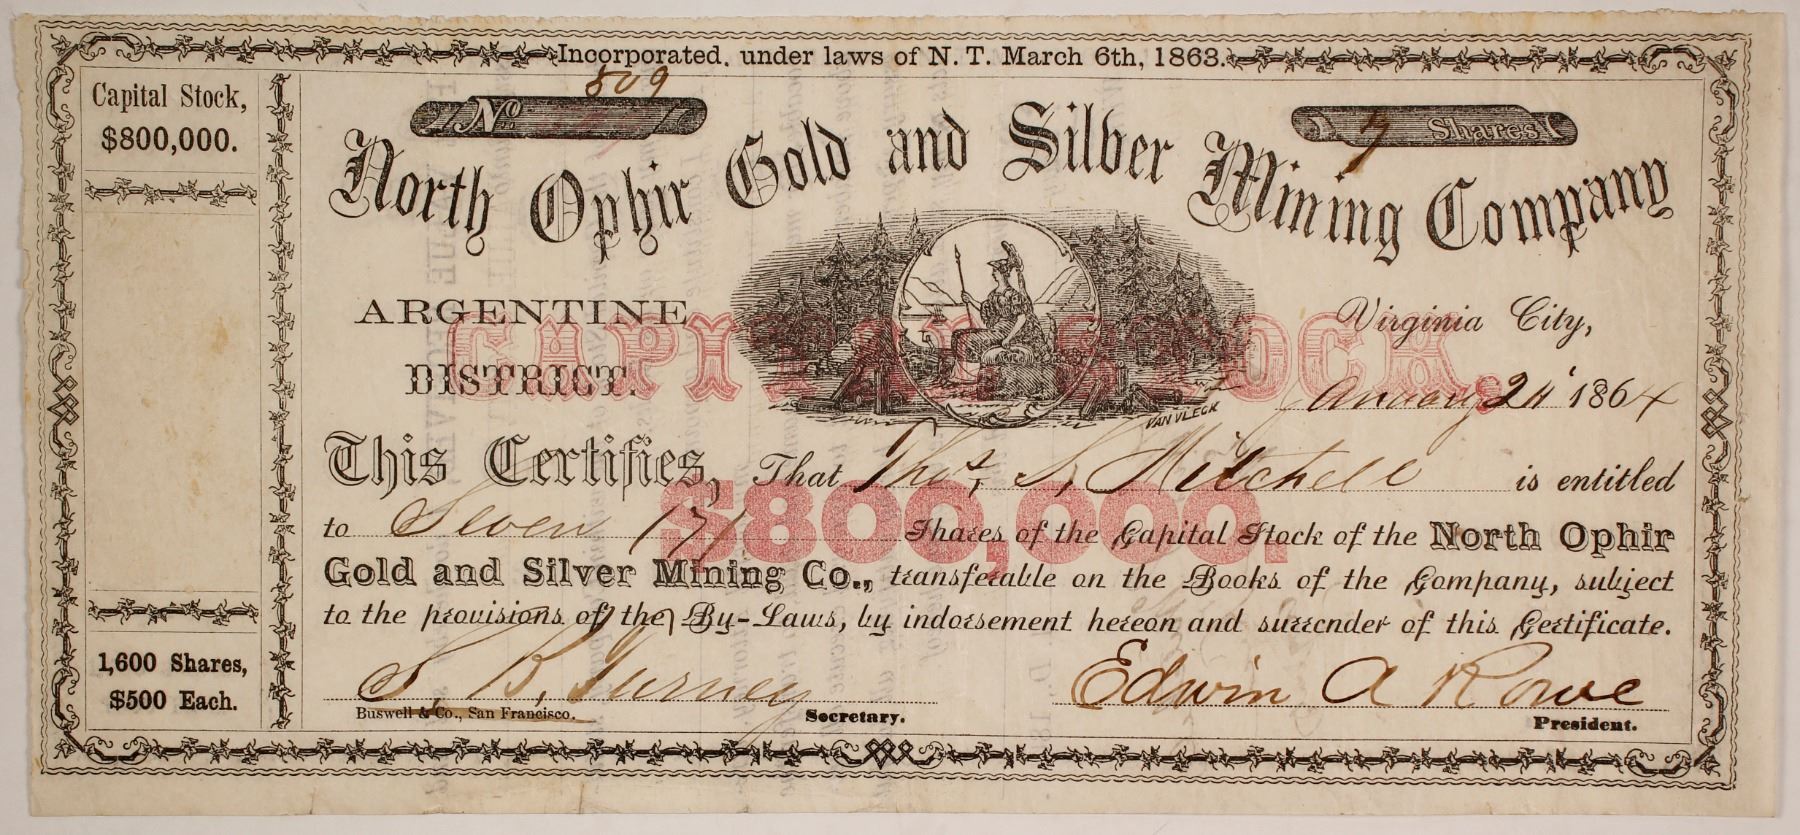 Incorporated, under laws of N. T. March 6th, 1863.
Capital Stock,
$800,000.
No. 509
7 Shares
North Ophir Gold and Silver Mining Company
ARGENTINE
DISTRICT.
CAPITAL STOCK.
$800,000.
VAN VLECK
Virginia City,
January 24 1864
This Certifies, That Thos. S. Mitchell is entitled
to Seven (7) Shares of the Capital Stock of the North Ophir
Gold and Silver Mining Co., transferable on the Books of the Company, subject
to the provisions of the By-Laws, by indorsement hereon and surrender of this Certificate.
1,600 Shares,
$500 Each.
Edwin A Rowe
Buswell & Co., San Francisco.
Secretary.
President.